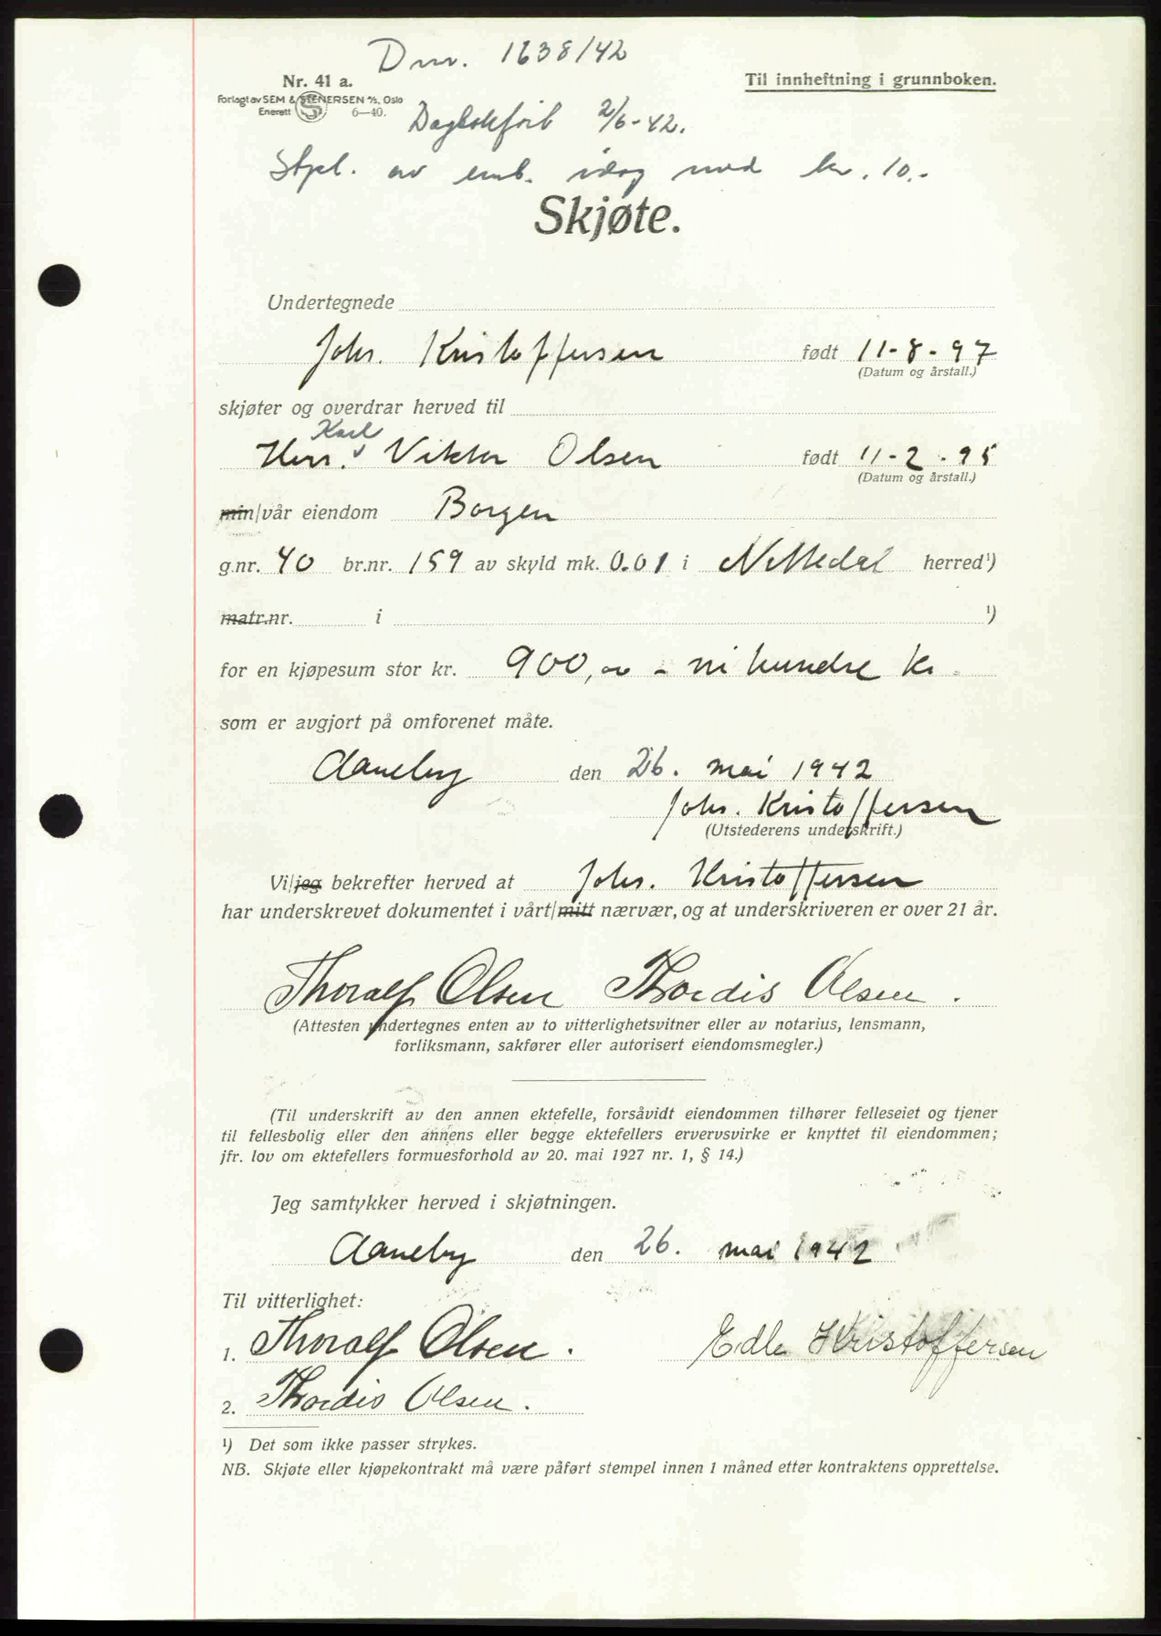 Dnr. 1638/42
Nr. 41 a.
Til innheftning i grunnboken.
Forlagt av SEM & STENERSEN A/S, Oslo
Enerett 6—40.
Dagbokført 2/6-42.
Stpl. av emb. idag med kr. 10.-
Skjøte.
Undertegnede
Johs. Kristoffersen født 11-8-97
(Datum og årstall.)
skjøter og overdrar herved til
Karl
Herr. Viktor Olsen født 11-2-95
(Datum og årstall.)
min/vår eiendom Borgen
g.nr. 40 br.nr. 159 av skyld mk. 0.01 i Nittedal herred¹)
matr.nr. i ¹)
for en kjøpesum stor kr. 900,00 - ni hundre kr
som er avgjort på omforenet måte.
Aaneby den 26. mai 1942
Johs. Kristoffersen
(Utstederens underskrift.)
Vi/jeg bekrefter herved at Johs. Kristoffersen
har underskrevet dokumentet i vårt/mitt nærvær, og at underskriveren er over 21 år.
Thoralf Olsen Thordis Olsen.
(Attesten undertegnes enten av to vitterlighetsvitner eller av notarius, lensmann,
forliksmann, sakfører eller autorisert eiendomsmegler.)
(Til underskrift av den annen ektefelle, forsåvidt eiendommen tilhører felleseiet og tjener
til fellesbolig eller den annens eller begge ektefellers ervervsvirke er knyttet til eiendommen;
jfr. lov om ektefellers formuesforhold av 20. mai 1927 nr. 1, § 14.)
Jeg samtykker herved i skjøtningen.
Aaneby den 26. mai 1942
Til vitterlighet:
1. Thoralf Olsen. Edle Kristoffersen
2. Thordis Olsen.
¹) Det som ikke passer strykes.
NB. Skjøte eller kjøpekontrakt må være påført stempel innen 1 måned etter kontraktens opprettelse.